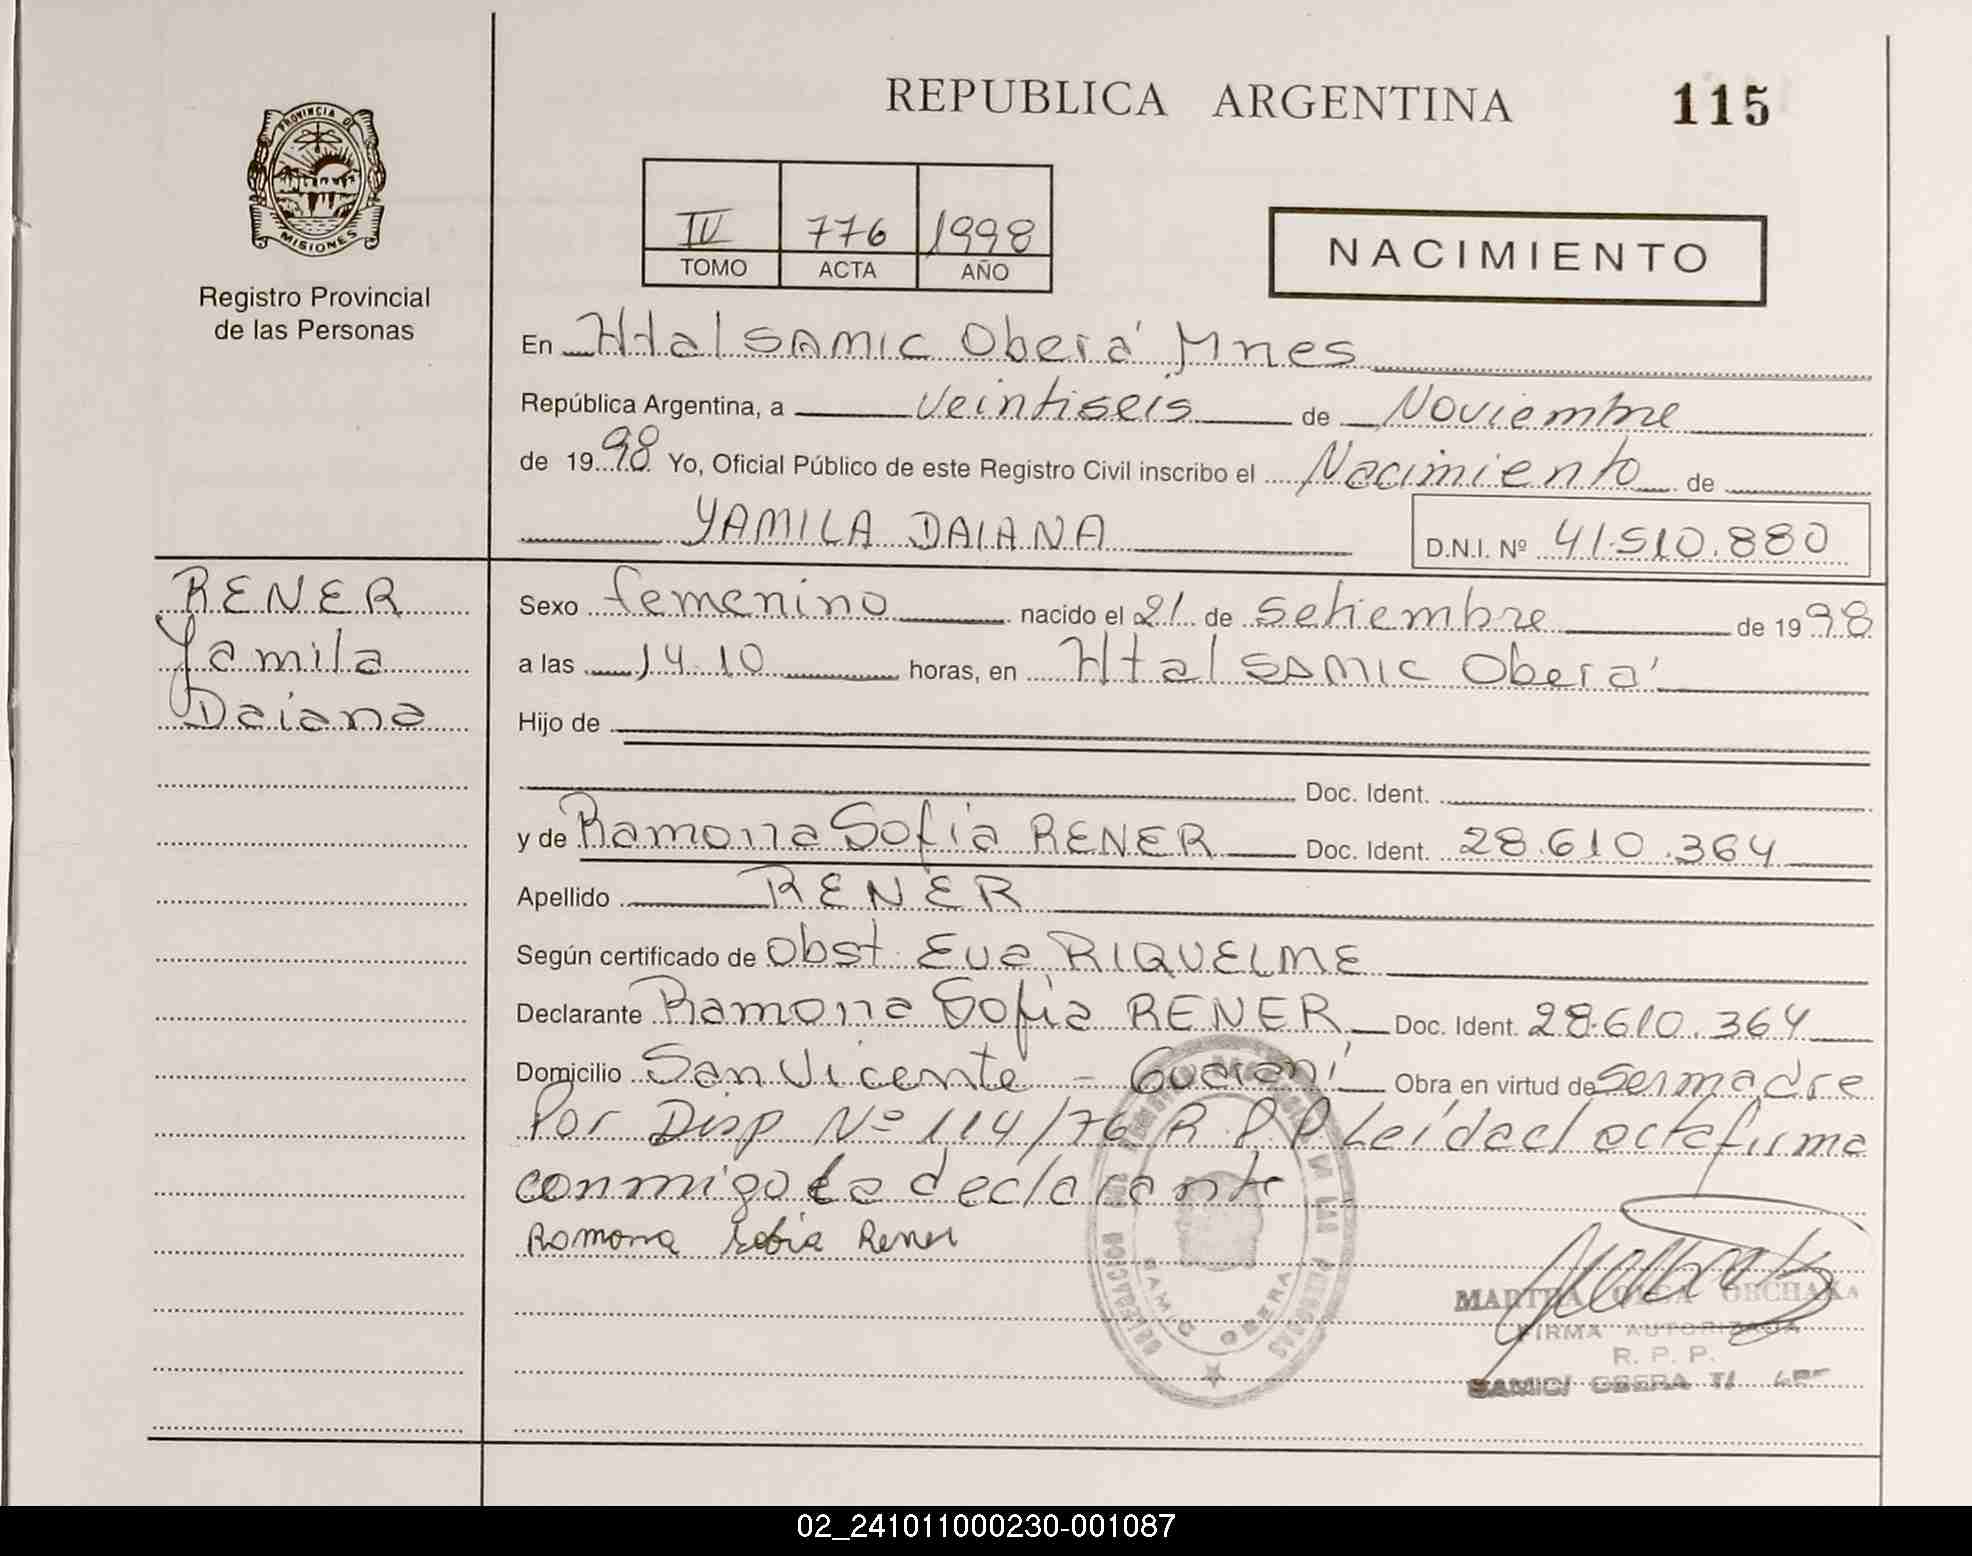 REPUBLICA ARGENTINA 115
PROVINCIA DE
MISIONES
Registro Provincial
de las Personas
IV 776 1998
TOMO ACTA AÑO
NACIMIENTO
En Htal SAMIC Oberá Mnes
República Argentina, a veintiseis de Noviembre
de 1998 Yo, Oficial Público de este Registro Civil inscribo el Nacimiento de
YAMILA DAIANA D.N.I. Nº 41.510.880
RENER
Yamila
Daiana
Sexo femenino nacido el 21 de Setiembre de 1998
a las 14.10 horas, en Htal SAMIC Oberá
Hijo de
Doc. Ident.
y de Ramona Sofía RENER Doc. Ident. 28.610.364
Apellido RENER
Según certificado de Obst. Eva RIQUELME
Declarante Ramona Sofia RENER Doc. Ident. 28.610.364
Domicilio San Vicente - Guaraní Obra en virtud de ser madre
Por Disp Nº 114/76 R.P.P Leída el acta firma
conmigo la declarante
Ramona Sofia Rener
DE LAS PERSONAS
SAMIC OBERA
MARTHA
FIRMA AUTORIZADA
R. P. P.
SAMIC/ OBERA
02_241011000230-001087